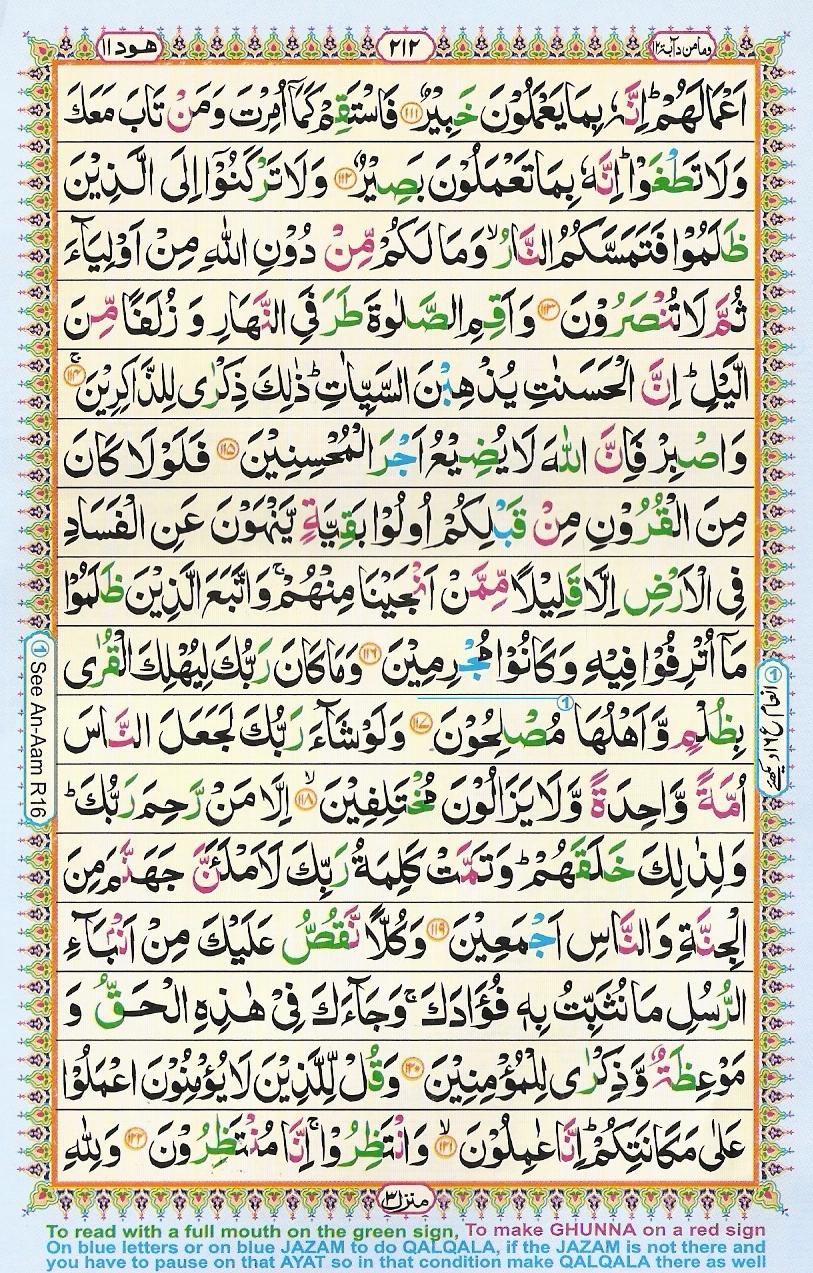 ومامن دآبة ١٢
٢١٢
هود ١١
اَعْمَالَهُمْ ؕ اِنَّهٗ بِمَا يَعْمَلُوْنَ خَبِيْرٌ ﴿۱۱۱﴾ فَاسْتَقِمْ كَمَاۤ اُمِرْتَ وَمَنْ تَابَ مَعَكَ
وَلَا تَطْغَوْا ؕ اِنَّهٗ بِمَا تَعْمَلُوْنَ بَصِيْرٌ ﴿۱۱۲﴾ وَلَا تَرْكَنُوْۤا اِلَى الَّذِيْنَ
ظَلَمُوْا فَتَمَسَّكُمُ النَّارُ ۙ وَمَا لَكُمْ مِّنْ دُوْنِ اللّٰهِ مِنْ اَوْلِيَآءَ
ثُمَّ لَا تُنْصَرُوْنَ ﴿۱۱۳﴾ وَاَقِمِ الصَّلٰوةَ طَرَفَيِ النَّهَارِ وَ زُلَفًا مِّنَ
الَّيْلِ ؕ اِنَّ الْحَسَنٰتِ يُذْهِبْنَ السَّيِّاٰتِ ؕ ذٰلِكَ ذِكْرٰى لِلذّٰكِرِيْنَ ﴿۱۱۴﴾ ۚ
وَاصْبِرْ فَاِنَّ اللّٰهَ لَا يُضِيْعُ اَجْرَ الْمُحْسِنِيْنَ ﴿۱۱۵﴾ فَلَوْلَا كَانَ
مِنَ الْقُرُوْنِ مِنْ قَبْلِكُمْ اُولُوْا بَقِيَّةٍ يَّنْهَوْنَ عَنِ الْفَسَادِ
فِى الْاَرْضِ اِلَّا قَلِيْلًا مِّمَّنْ اَنْجَيْنَا مِنْهُمْ ۚ وَاتَّبَعَ الَّذِيْنَ ظَلَمُوْا
مَاۤ اُتْرِفُوْا فِيْهِ وَكَانُوْا مُجْرِمِيْنَ ﴿۱۱۶﴾ وَمَا كَانَ رَبُّكَ لِيُهْلِكَ الْقُرٰى
بِظُلْمٍ وَّاَهْلُهَا مُصْلِحُوْنَ ﴿۱۱۷﴾ وَلَوْ شَآءَ رَبُّكَ لَجَعَلَ النَّاسَ
اُمَّةً وَّاحِدَةً وَّلَا يَزَالُوْنَ مُخْتَلِفِيْنَ ﴿۱۱۸﴾ ۙ اِلَّا مَنْ رَّحِمَ رَبُّكَ ؕ
وَلِذٰلِكَ خَلَقَهُمْ ؕ وَتَمَّتْ كَلِمَةُ رَبِّكَ لَاَمْلَئَنَّ جَهَنَّمَ مِنَ
الْجِنَّةِ وَالنَّاسِ اَجْمَعِيْنَ ﴿۱۱۹﴾ وَكُلًّا نَّقُصُّ عَلَيْكَ مِنْ اَنْۢبَآءِ
الرُّسُلِ مَا نُثَبِّتُ بِهٖ فُؤَادَكَ ۚ وَجَآءَكَ فِىْ هٰذِهِ الْحَقُّ وَ
مَوْعِظَةٌ وَّذِكْرٰى لِلْمُؤْمِنِيْنَ ﴿۱۲۰﴾ وَقُلْ لِّلَّذِيْنَ لَا يُؤْمِنُوْنَ اعْمَلُوْا
عَلٰى مَكَانَتِكُمْ ؕ اِنَّا عٰمِلُوْنَ ﴿۱۲۱﴾ ۙ وَانْتَظِرُوْا ۚ اِنَّا مُنْتَظِرُوْنَ ﴿۱۲۲﴾ وَلِلّٰهِ
① انعام ع ١٦ دیکھئے
① See An-Aam R16
①
منزل ٣
To read with a full mouth on the green sign, To make GHUNNA on a red sign
On blue letters or on blue JAZAM to do QALQALA, if the JAZAM is not there and
you have to pause on that AYAT so in that condition make QALQALA there as well